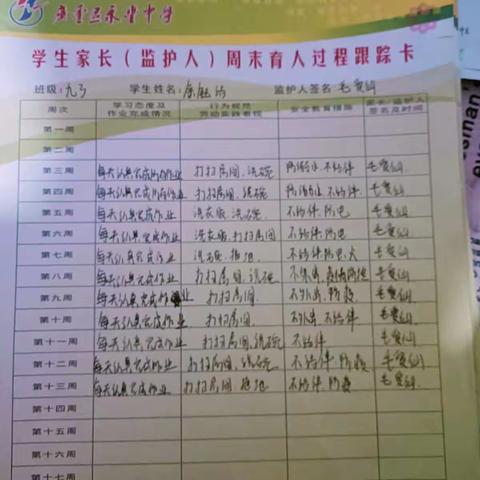 学生家长（监护人）周末育人过程跟踪卡
班级: 九3 学生姓名: 监护人签名 毛爱仙
周次 学习态度及作业完成情况 行为规范劳动实践看视 安全教育措施 家长/监护人签名及时间
第一周
第二周
第三周 每天认真完成作业 打扫房间、洗碗 防溺水、不结伴 毛爱仙
第四周 每天认真完成作业 打扫房间、洗碗 防溺水、不结伴 毛爱仙
第五周 每天认真完成作业 洗衣服、洗碗 不结伴、防电 毛爱仙
第六周 每天认真完成作业 洗衣服、打扫房间 不结伴、防电 毛爱仙
第七周 每天认真完成作业 洗碗、拖地 不结伴、防电、火 毛爱仙
第八周 每天认真完成作业 打扫房间、洗碗 不集会、疫情防控 毛爱仙
第九周 每天认真完成作业 打扫房间 不外出、防疫 毛爱仙
第十周 每天认真完成作业 打扫房间 不外出、不结伴 毛爱仙
第十一周 每天认真完成作业 打扫房间、洗碗 不结伴 毛爱仙
第十二周 每天认真完成作业 打扫房间、洗碗 不结伴、防疫 毛爱仙
第十三周 每天认真完成作业 打扫房间、拖地 不结伴、防疫 毛爱仙
第十四周
第十五周
第十六周
第十七周